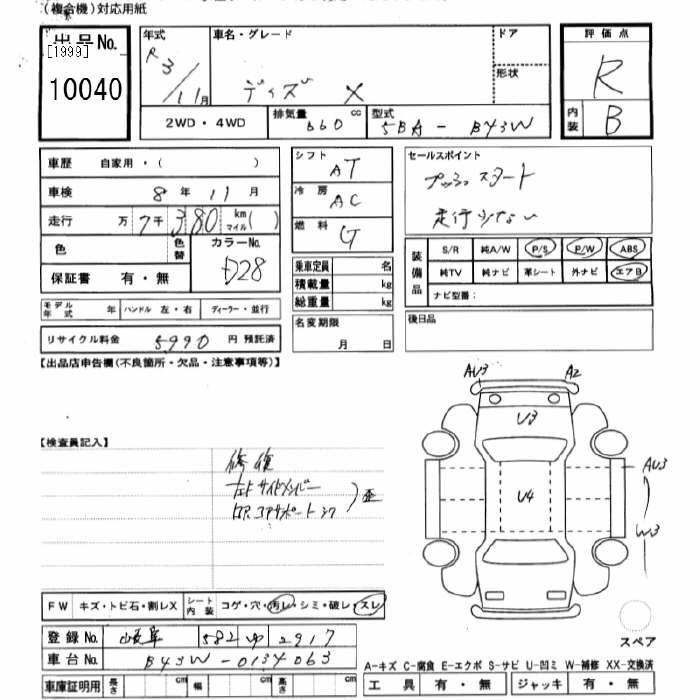 (複合機)対応用紙
出品No.
[1999]
10040
年式
R3/11月
車名・グレード
デイズ X
ドア
形状
2WD・4WD
排気量 660 cc
型式 5BA-B43W
評価点
R
内装 B
車歴 自家用・( )
車検 8年 11月
走行 万7千380 km マイル( )
色 色替 カラーNo.
保証書 有・無
モデル年式 年 ハンドル 左・右 ディーラー・並行
リサイクル料金 5990 円 預託済
シフト AT
冷房 AC
燃料 G
乗車定員 名
積載量 kg
総重量 kg
名変期限
月 日
セールスポイント
プッシュスタート
走行少ない
装備品
S/R 純A/W P/S P/W ABS
純TV 純ナビ 革シート 外ナビ エアB
ナビ型番:
後日品
【出品店申告欄(不良箇所・欠品・注意事項等)】
【検査員記入】
修復
歪
AU3 A2
U3
U4
AU3
W3
スペア
FW キズ・トビ石・割レX シート内装 コゲ・穴・汚レ・シミ・破レ・スレ
登録No. 岐阜 582 ゆ 2917
車台No. B43W-0134063
車庫証明用 長さ cm 幅 cm 高さ cm
A-キズ C-腐食 E-エクボ S-サビ U-凹ミ W-補修 XX-交換済
工具 有・無 ジャッキ 有・無